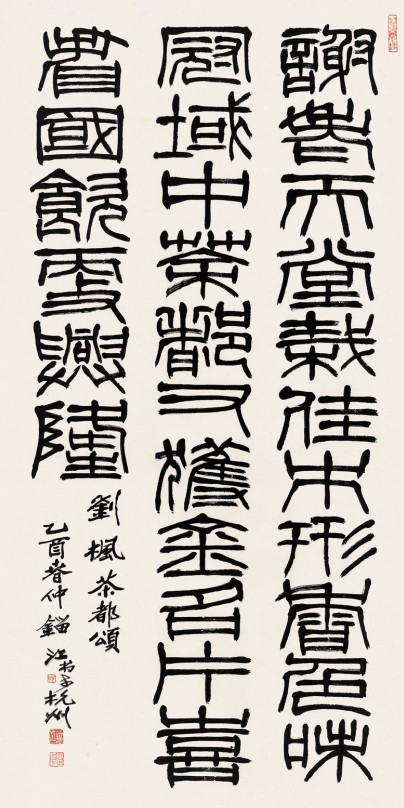 謝天堂栽佳木形香色味
冠域中茶都又獲金名片喜
看國飲更興隆
劉楓茶都頌
乙酉春仲鎦江書于杭州